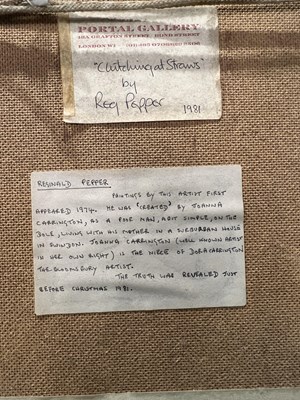 PORTAL GALLERY
16A GRAFTON STREET BOND STREET
LONDON W1
"Clutching at Straws"
by
Reg Pepper
1981
REGINALD PEPPER
PAINTINGS BY THIS ARTIST FIRST
APPEARED 1974. HE WAS 'CREATED' BY JOANNA
CARRINGTON, AS A POOR MAN, A BIT SIMPLE, ON THE
DOLE, LIVING WITH HIS MOTHER IN A SUBURBAN HOUSE
IN SWINDON. JOANNA CARRINGTON (WELL KNOWN ARTIST
IN HER OWN RIGHT) IS THE NIECE OF DORA CARRINGTON
THE BLOOMSBURY ARTIST.
THE TRUTH WAS REVEALED JUST
BEFORE CHRISTMAS 1981.